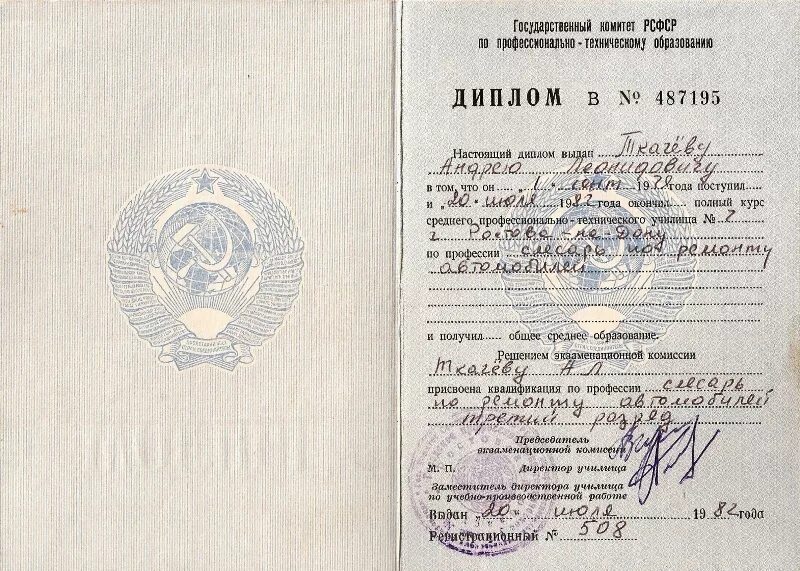 Государственный комитет РСФСР
по профессионально-техническому образованию
ДИПЛОМ В № 487195
Настоящий диплом выдан Ткачёву
Андрею Леонидовичу
в том, что он 1 сент 1979 года поступил
и „20" июля 1982 года окончил полный курс
среднего профессионально-технического училища № 2
г Ростова-на-Дону
по профессии слесарь по ремонту
автомобилей
и получил общее среднее образование.
Решением экзаменационной комиссии
Ткачеву А Л
присвоена квалификация по профессии слесарь
по ремонту автомобилей
третий разряд
Председатель
экзаменационной комиссии
М. П. Директор училища
Заместитель директора училища
по учебно-производственной работе
Выдан „20" июля 1982 года
Регистрационный № 508